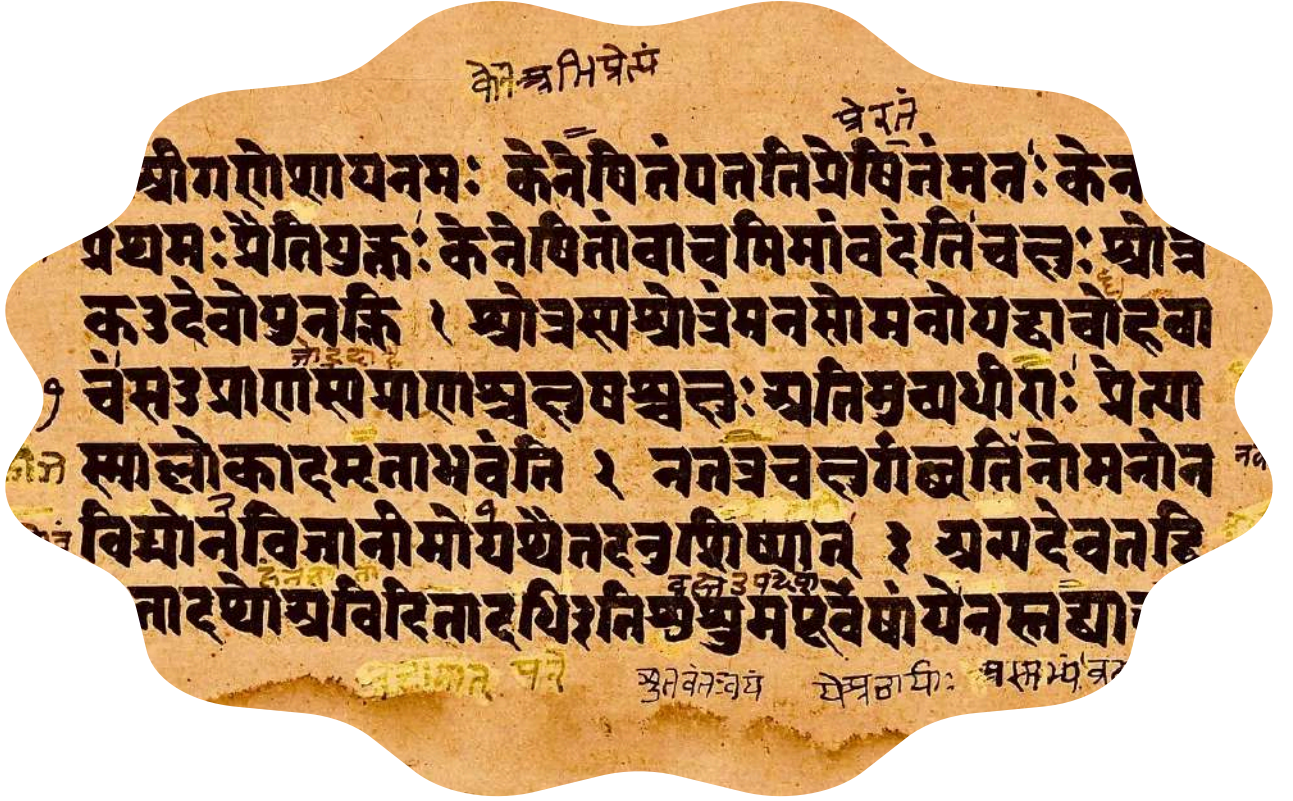 प्रेरतं
श्रीगणेशायनमः केनेषितंपततिप्रेषितंमनः केन
प्रथमःप्रैतियुक्तःकेनेषितांवाचमिमांवदंतिचक्षुःश्रोत्र
कउदेवोयुनक्ति १ श्रोत्रस्यश्रोत्रंमनसोमनोयद्वाचोहवा
चंसउप्राणस्यप्राणश्चक्षुषश्चक्षुःअतिमुच्यधीराः प्रेत्या
स्माल्लोकादमृताभवंति २ नतत्रचक्षुर्गच्छतिनोमनोन
विद्मोनविजानीमोयथैतदनुशिष्यात् ३ अन्यदेवतद्वि
तादथोअविदितादधिइतिशुश्रुमपूर्वेषांयेनस्तद्व्या
श्रुतवंतःवयं